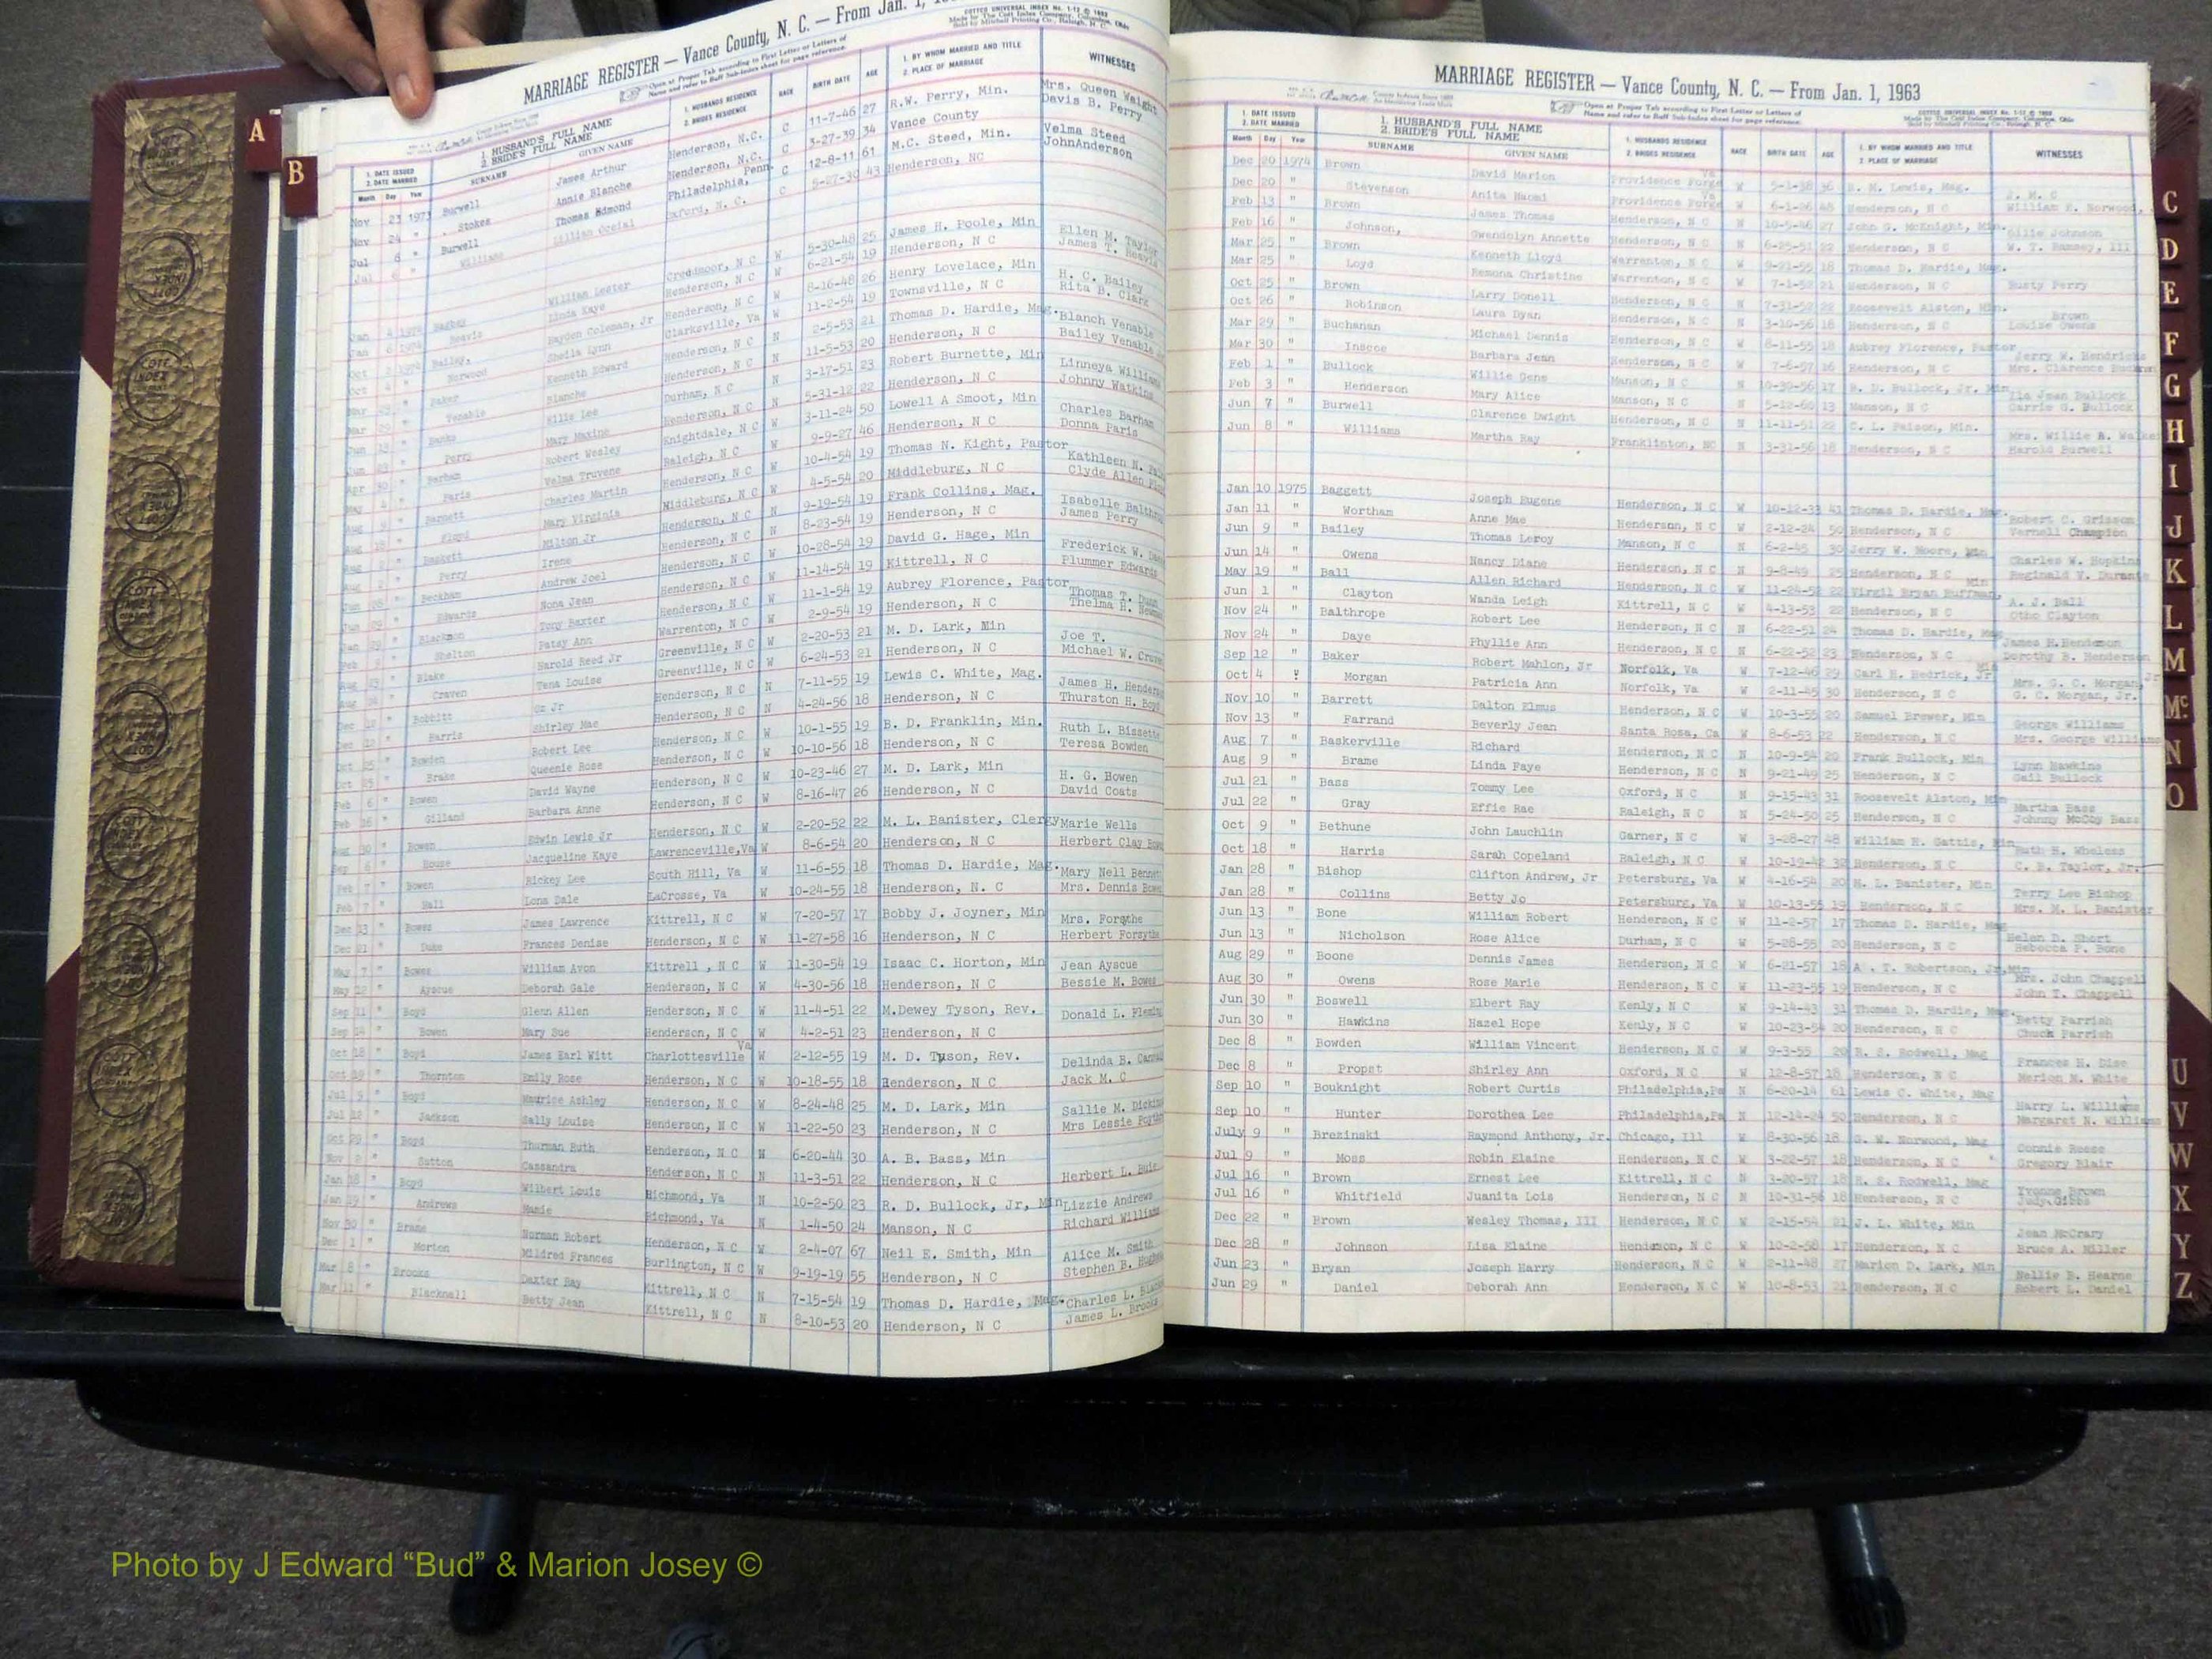 MARRIAGE REGISTER — Vance County, N. C. — From Jan. 1,
1. DATE ISSUED 2. DATE MARRIED
1. HUSBAND'S FULL NAME 2. BRIDE'S FULL NAME
SURNAME GIVEN NAME
1. HUSBANDS RESIDENCE 2. BRIDES RESIDENCE
RACE BIRTH DATE AGE
1. BY WHOM MARRIED AND TITLE 2. PLACE OF MARRIAGE
WITNESSES
Nov 23 1973 Burwell James Arthur Henderson, N.C. C 11-7-46 27 R.W. Perry, Min. Mrs. Queen Waight
Nov 24 " Stokes Annie Blanche Henderson, N.C. C 3-27-39 34 Vance County Davis B. Perry
Jul 6 " Burwell Thomas Edmond Philadelphia, Penn. C 12-8-11 61 M.C. Steed, Min. Velma Steed
Jul 6 " Williams Oxford, N. C. C 5-27-30 43 Henderson, NC JohnAnderson
William Lester Creedmoor, N C W 5-30-48 25 James H. Poole, Min
Linda Kaye Henderson, N C W 6-21-54 19 Henderson, N C
Bailey, Hayden Coleman, Jr Henderson, N C W 8-16-48 26 Henry Lovelace, Min H. C. Bailey
Norwood Sheila Lynn Clarksville, Va W 11-2-54 19 Townsville, N C Rita B. Clark
Baker Kenneth Edward Henderson, N C N 2-5-53 21 Thomas D. Hardie, Mag. Blanch Venable
Venable Blanche Henderson, N C N 11-5-53 20 Henderson, N C Bailey Venable
Banks Willie Lee Durham, N C N 3-17-51 23 Robert Burnette, Min
Perry Mary Maxine Henderson, N C N 5-31-12 22 Henderson, N C
Barham Robert Wesley Knightdale, N C W 3-11-24 50 Lowell A Smoot, Min Charles Barham
Paris Velma Truvene Raleigh, N C W 9-9-27 46 Henderson, N C Donna Paris
Barnett Charles Martin Henderson, N C W 10-4-54 19 Thomas N. Kight, Pastor
Floyd Mary Virginia Middleburg, N C W 4-5-54 20 Middleburg, N C
Baskett Milton Jr Henderson, N C N 9-19-54 19 Frank Collins, Mag.
Perry Irene Henderson, N C N 8-23-54 19 Henderson, N C James Perry
Beckham Andrew Joel Henderson, N C W 10-28-54 19 David G. Hage, Min
Edwards Nona Jean Henderson, N C W 11-14-54 19 Kittrell, N C Plummer Edwards
Blackmon Tony Baxter Henderson, N C W 11-1-54 19 Aubrey Florence, Pastor
Shelton Patsy Ann Warrenton, N C W 2-9-54 19 Henderson, N C
Blake Harold Reed Jr Greenville, N C W 2-20-53 21 M. D. Lark, Min Joe T.
Craven Tena Louise Greenville, N C W 6-24-53 21 Henderson, N C
Bobbitt Oz Jr Henderson, N C N 7-11-55 19 Lewis C. White, Mag.
Harris Shirley Mae Henderson, N C N 4-24-56 18 Henderson, N C
Bowden Robert Lee Henderson, N C W 10-1-55 19 B. D. Franklin, Min. Ruth L. Bissette
Brake Queenie Rose Henderson, N C W 10-10-56 18 Henderson, N C Teresa Bowden
Feb 6 " Bowen David Wayne Henderson, N C W 10-23-46 27 M. D. Lark, Min H. G. Bowen
Feb 16 " Gilland Barbara Anne Henderson, N C W 8-16-47 26 Henderson, N C David Coats
Aug 30 " Bowen Edwin Lewis Jr Henderson, N C W 2-20-52 22 M. L. Banister, Clergy Marie Wells
Sep 6 " House Jacqueline Kaye Lawrenceville, Va W 8-6-54 20 Henderson, N C
Feb 7 " Bowen Rickey Lee South Hill, Va W 11-6-55 18 Thomas D. Hardie, Mag.
Feb 7 " Hall Lona Dale LaCrosse, Va W 10-24-55 18 Henderson, N. C
Dec 13 " Bowes James Lawrence Kittrell, N C W 7-20-57 17 Bobby J. Joyner, Min Mrs. Forsythe
Dec 21 " Duke Frances Denise Henderson, N C W 11-27-58 16 Henderson, N C Herbert Forsythe
May 7 " Bowes William Avon Kittrell , N C W 11-30-54 19 Isaac C. Horton, Min Jean Ayscue
May 12 " Ayscue Deborah Gale Henderson, N C W 4-30-56 18 Henderson, N C Bessie M. Bowes
Sep 11 " Boyd Glenn Allen Henderson, N C W 11-4-51 22 M.Dewey Tyson, Rev.
Sep 14 " Bowen Mary Sue Henderson, N C W 4-2-51 23 Henderson, N C
Oct 18 " Boyd James Earl Witt Charlottesville Va W 2-12-55 19 M. D. Tyson, Rev.
Oct 19 " Thornton Emily Rose Henderson, N C W 10-18-55 18 Henderson, N C Jack M. C
Jul 5 " Boyd Maurice Ashley Henderson, N C W 8-24-48 25 M. D. Lark, Min
Jul 12 " Jackson Sally Louise Henderson, N C W 11-22-50 23 Henderson, N C
Oct 29 " Boyd Thurman Ruth Henderson, N C N 6-20-44 30 A. B. Bass, Min
Nov 2 " Sutton Cassandra Henderson, N C N 11-3-51 22 Henderson, N C
Jan 18 " Boyd Wilbert Louis Richmond, Va N 10-2-50 23 R. D. Bullock, Jr, Min Lizzie Andrews
Jan 19 " Andrews Mamie Richmond, Va N 1-4-50 24 Manson, N C
Nov 30 " Brame Norman Robert Henderson, N C W 2-4-07 67 Neil E. Smith, Min Alice M. Smith
Dec 1 " Morton Mildred Frances Burlington, N C W 9-19-19 55 Henderson, N C
Mar 8 " Brooks Daxter Ray Kittrell, N C N 7-15-54 19 Thomas D. Hardie, Mag.
Mar 11 " Blacknall Betty Jean Kittrell, N C N 8-10-53 20 Henderson, N C James L. Brooks
MARRIAGE REGISTER — Vance County, N. C. — From Jan. 1, 1963
1. DATE ISSUED 2. DATE MARRIED
Month Day Year
1. HUSBAND'S FULL NAME 2. BRIDE'S FULL NAME
SURNAME GIVEN NAME
1. HUSBANDS RESIDENCE 2. BRIDES RESIDENCE
RACE BIRTH DATE AGE
1. BY WHOM MARRIED AND TITLE 2. PLACE OF MARRIAGE
WITNESSES
Dec 20 1974 Brown David Marion Providence Forge Va W 5-1-38 36
Dec 20 " Stevenson Anita Naomi Providence Forge Va W 6-1-26 48 Henderson, N C
Feb 13 " Brown James Thomas Henderson, N C N 10-5-46 27 John G. McKnight, Min. Billie Johnson
Feb 16 " Johnson, Gwendolyn Annette Henderson, N C N 6-25-51 22 Henderson, N C W. T. Ramsey, III
Mar 25 " Brown Kenneth Lloyd Warrenton, N C W 9-21-55 18 Thomas D. Hardie, Mag.
Mar 25 " Loyd Remona Christine Warrenton, N C W 7-1-52 21 Henderson, N C Rusty Perry
Oct 25 " Brown Larry Donell Henderson, N C N 7-31-52 22 Roosevelt Alston, Min. Brown
Oct 26 " Robinson Laura Dyan Henderson, N C N 3-10-56 18 Henderson, N C Louise Owens
Mar 29 " Buchanan Michael Dennis Henderson, N C W 8-11-55 18 Aubrey Florence, Pastor
Mar 30 " Inscoe Barbara Jean Henderson, N C W 7-6-57 16 Henderson, N C
Feb 1 " Bullock Willie Gene Manson, N C N 10-30-56 17 R. D. Bullock, Jr. Min Ila Jean Bullock
Feb 3 " Henderson Mary Alice Manson, N C N 5-12-60 13 Manson, N C Carrie G. Bullock
Jun 7 " Burwell Clarence Dwight Henderson, N C N 11-11-51 22 C. L. Faison, Min.
Jun 8 " Williams Martha Ray Franklinton, NC N 3-31-56 18 Henderson, N C Harold Burwell
Jan 10 1975 Baggett Joseph Eugene Henderson, N C W 10-12-33 41 Thomas D. Hardie, Mag. Robert C. Grissom
Jan 11 " Wortham Anne Mae Henderson, N C W 2-12-24 50 Henderson, N C Vernell Champion
Jun 9 " Bailey Thomas Leroy Manson, N C N 6-2-45 30 Jerry W. Moore, Min Charles W. Hopkins
Jun 14 " Owens Nancy Diane Henderson, N C N 9-8-49 25 Henderson, N C
May 19 " Ball Allen Richard Henderson, N C W 11-24-52 22 Virgil Bryan Ruffman, Min A. J. Ball
Jun 1 " Clayton Wanda Leigh Kittrell, N C W 4-13-53 22 Henderson, N C Otho Clayton
Nov 24 " Balthrope Robert Lee Henderson, N C N 6-22-51 24 Thomas D. Hardie, Mag James H.Henderson
Nov 24 " Daye Phyllie Ann Henderson, N C N 6-22-52 23 Henderson, N C Dorothy B. Henderson
Sep 12 " Baker Robert Mahlon, Jr Norfolk, Va W 7-12-46 29 Carl H. Hedrick, Jr Min Mrs. G. C. Morgan, Jr
Oct 4 " Morgan Patricia Ann Norfolk, Va W 2-11-45 30 Henderson, N C G. C. Morgan, Jr.
Nov 10 " Barrett Dalton Elmus Henderson, N C W 10-3-55 20 Samuel Brewer, Min George Williams
Nov 13 " Farrand Beverly Jean Santa Rosa, Ca W 8-6-53 22 Henderson, N C Mrs. George Williams
Aug 7 " Baskerville Richard Henderson, N C N 10-9-54 20 Frank Bullock, Min Lynn Hawkins
Aug 9 " Brame Linda Faye Henderson, N C N 9-21-49 25 Henderson, N C Gail Bullock
Jul 21 " Bass Tommy Lee Oxford, N C N 9-15-43 31 Roosevelt Alston, Min Martha Bass
Jul 22 " Gray Effie Rae Raleigh, N C N 5-24-50 25 Henderson, N C Johnny McCoy Bass
Oct 9 " Bethune John Lauchlin Garner, N C W 3-28-27 48 William R. Gattis, Min Ruth B. Wheless
Oct 18 " Harris Sarah Copeland Raleigh, N C W 10-19-42 32 Henderson, N C C. B. Taylor, Jr.
Jan 28 " Bishop Clifton Andrew, Jr Petersburg, Va W 4-16-54 20 M. L. Banister, Min Terry Lee Bishop
Jan 28 " Collins Betty Jo Petersburg, Va W 10-13-55 19 Henderson, N C Mrs. M. L. Banister
Jun 13 " Bone William Robert Henderson, N C W 11-2-57 17 Thomas D. Hardie, Mag Helen D. Short
Jun 13 " Nicholson Rose Alice Durham, N C W 5-28-55 20 Henderson, N C Rebecca P. Bone
Aug 29 " Boone Dennis James Henderson, N C W 6-21-57 18 A . T. Robertson, Jr,Min Mrs. John Chappell
Aug 30 " Owens Rose Marie Henderson, N C W 11-23-55 19 Henderson, N C John T. Chappell
Jun 30 " Boswell Elbert Ray Kenly, N C W 9-14-43 31 Thomas D. Hardie, Mag. Betty Parrish
Jun 30 " Hawkins Hazel Hope Kenly, N C W 10-23-54 20 Henderson, N C Chuck Parrish
Dec 8 " Bowden William Vincent Henderson, N C W 9-3-55 20 R. S. Rodwell, Mag
Dec 8 " Propst Shirley Ann Oxford, N C W 12-8-57 18 Henderson, N C Merion N. White
Sep 10 " Bouknight Robert Curtis Philadelphia,Pa N 6-20-14 61 Lewis C. White, Mag Harry L. Williams
Sep 10 " Hunter Dorothea Lee Philadelphia,Pa N 12-14-24 50 Henderson, N C Margaret N. Williams
July 9 " Brezinski Raymond Anthony, Jr. Chicago, Ill W 8-30-56 18 G. W. Norwood, Mag Connie Reese
Jul 9 " Moss Robin Elaine Henderson, N C W 3-22-57 18 Henderson, N C Gregory Blair
Jul 16 " Brown Ernest Lee Kittrell, N C N 3-20-57 18 R. S. Rodwell, Mag Yvonne Brown
Jul 16 " Whitfield Juanita Lois Henderson, N C N 10-31-56 18 Henderson, N C Judy Gibbs
Dec 22 " Brown Wesley Thomas, III Henderson, N C W 2-15-54 21 J. L. White, Min Jean McCrary
Dec 28 " Johnson Lisa Elaine Henderson, N C W 10-2-58 17 Henderson, N C Bruce A. Miller
Jun 23 " Bryan Joseph Harry Henderson, N C W 2-11-48 27 Marion D. Lark, Min Nellie B. Hearne
Jun 29 " Daniel Deborah Ann Henderson, N C W 10-8-53 21 Henderson, N C Robert L. Daniel
A
B
C
D
E
F
G
H
I
J
K
L
M
Mc
N
O
U
V
W
X
Y
Z
Photo by J Edward “Bud” & Marion Josey ©